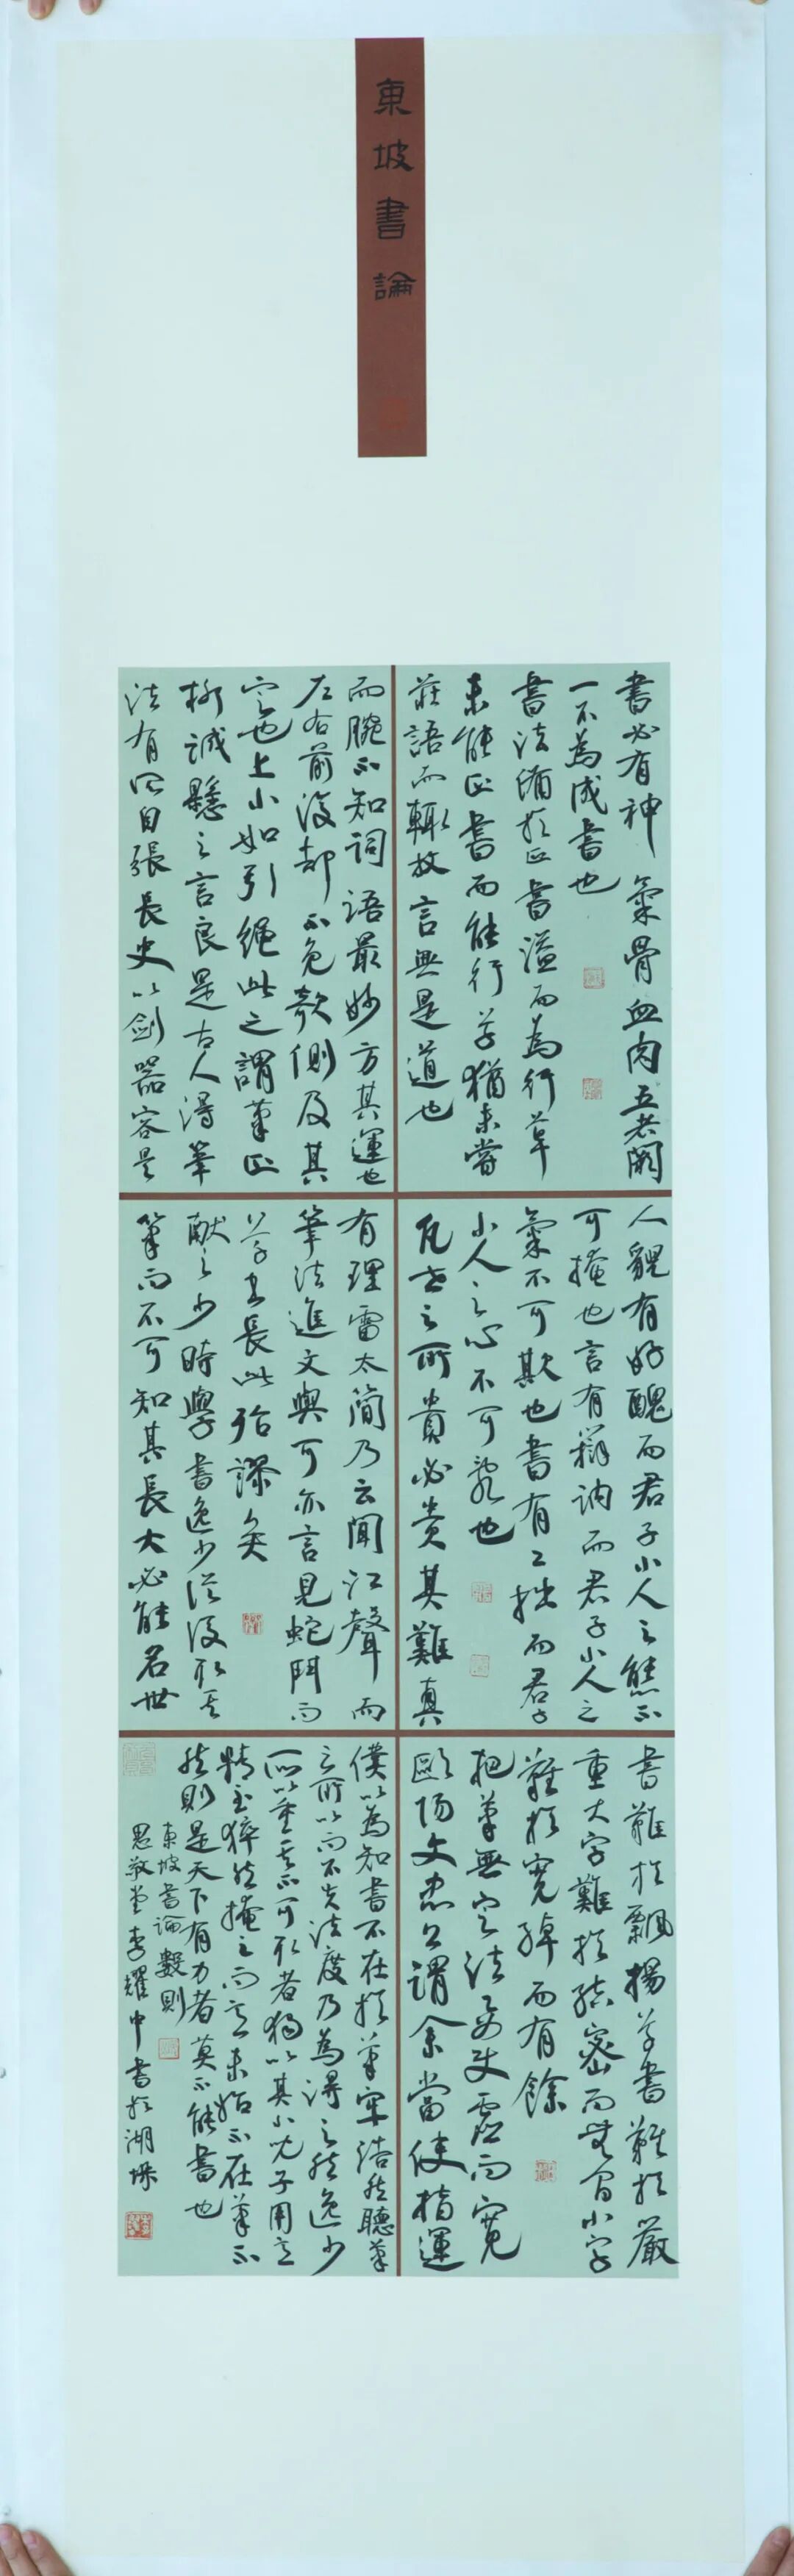 東坡書論
書必有神氣骨血肉五者闕
一不為成書也
書法備於正書溢而為行草
未能正書而能行草猶未嘗
莊語而輒放言無是道也
人貌有好醜而君子小人之態不
可掩也言有辯訥而君子小人之
氣不可欺也書有工拙而君子
小人之心不可亂也
凡世之所貴必貴其難真
書難於飄揚草書難於嚴
重大字難於結密而無間小字
難於寬綽而有餘
把筆無定法要使虛而寬
歐陽文忠公謂余當使指運
而腕不知詞語最妙方其運也
左右前後却不免欹側及其
定也上小如引繩此之謂筆正
柳誠懸之言良是古人得筆
法有所自張長史以劍器容是
有理雷太簡乃云聞江聲而
筆法進文與可亦言見蛇鬥而
草書長此殆謬矣
獻之少時學書逸少從後取其
筆而不可知其長大必能名世
僕以為知書不在於筆牢浩然聽筆
之所以而不失法度乃為得之然逸少
所以重其不可取者獨以其小兒子用意
精至猝然掩之而意未始不在筆不
然則是天下有力者莫不能書也
東坡書論數則
李耀中書於湖